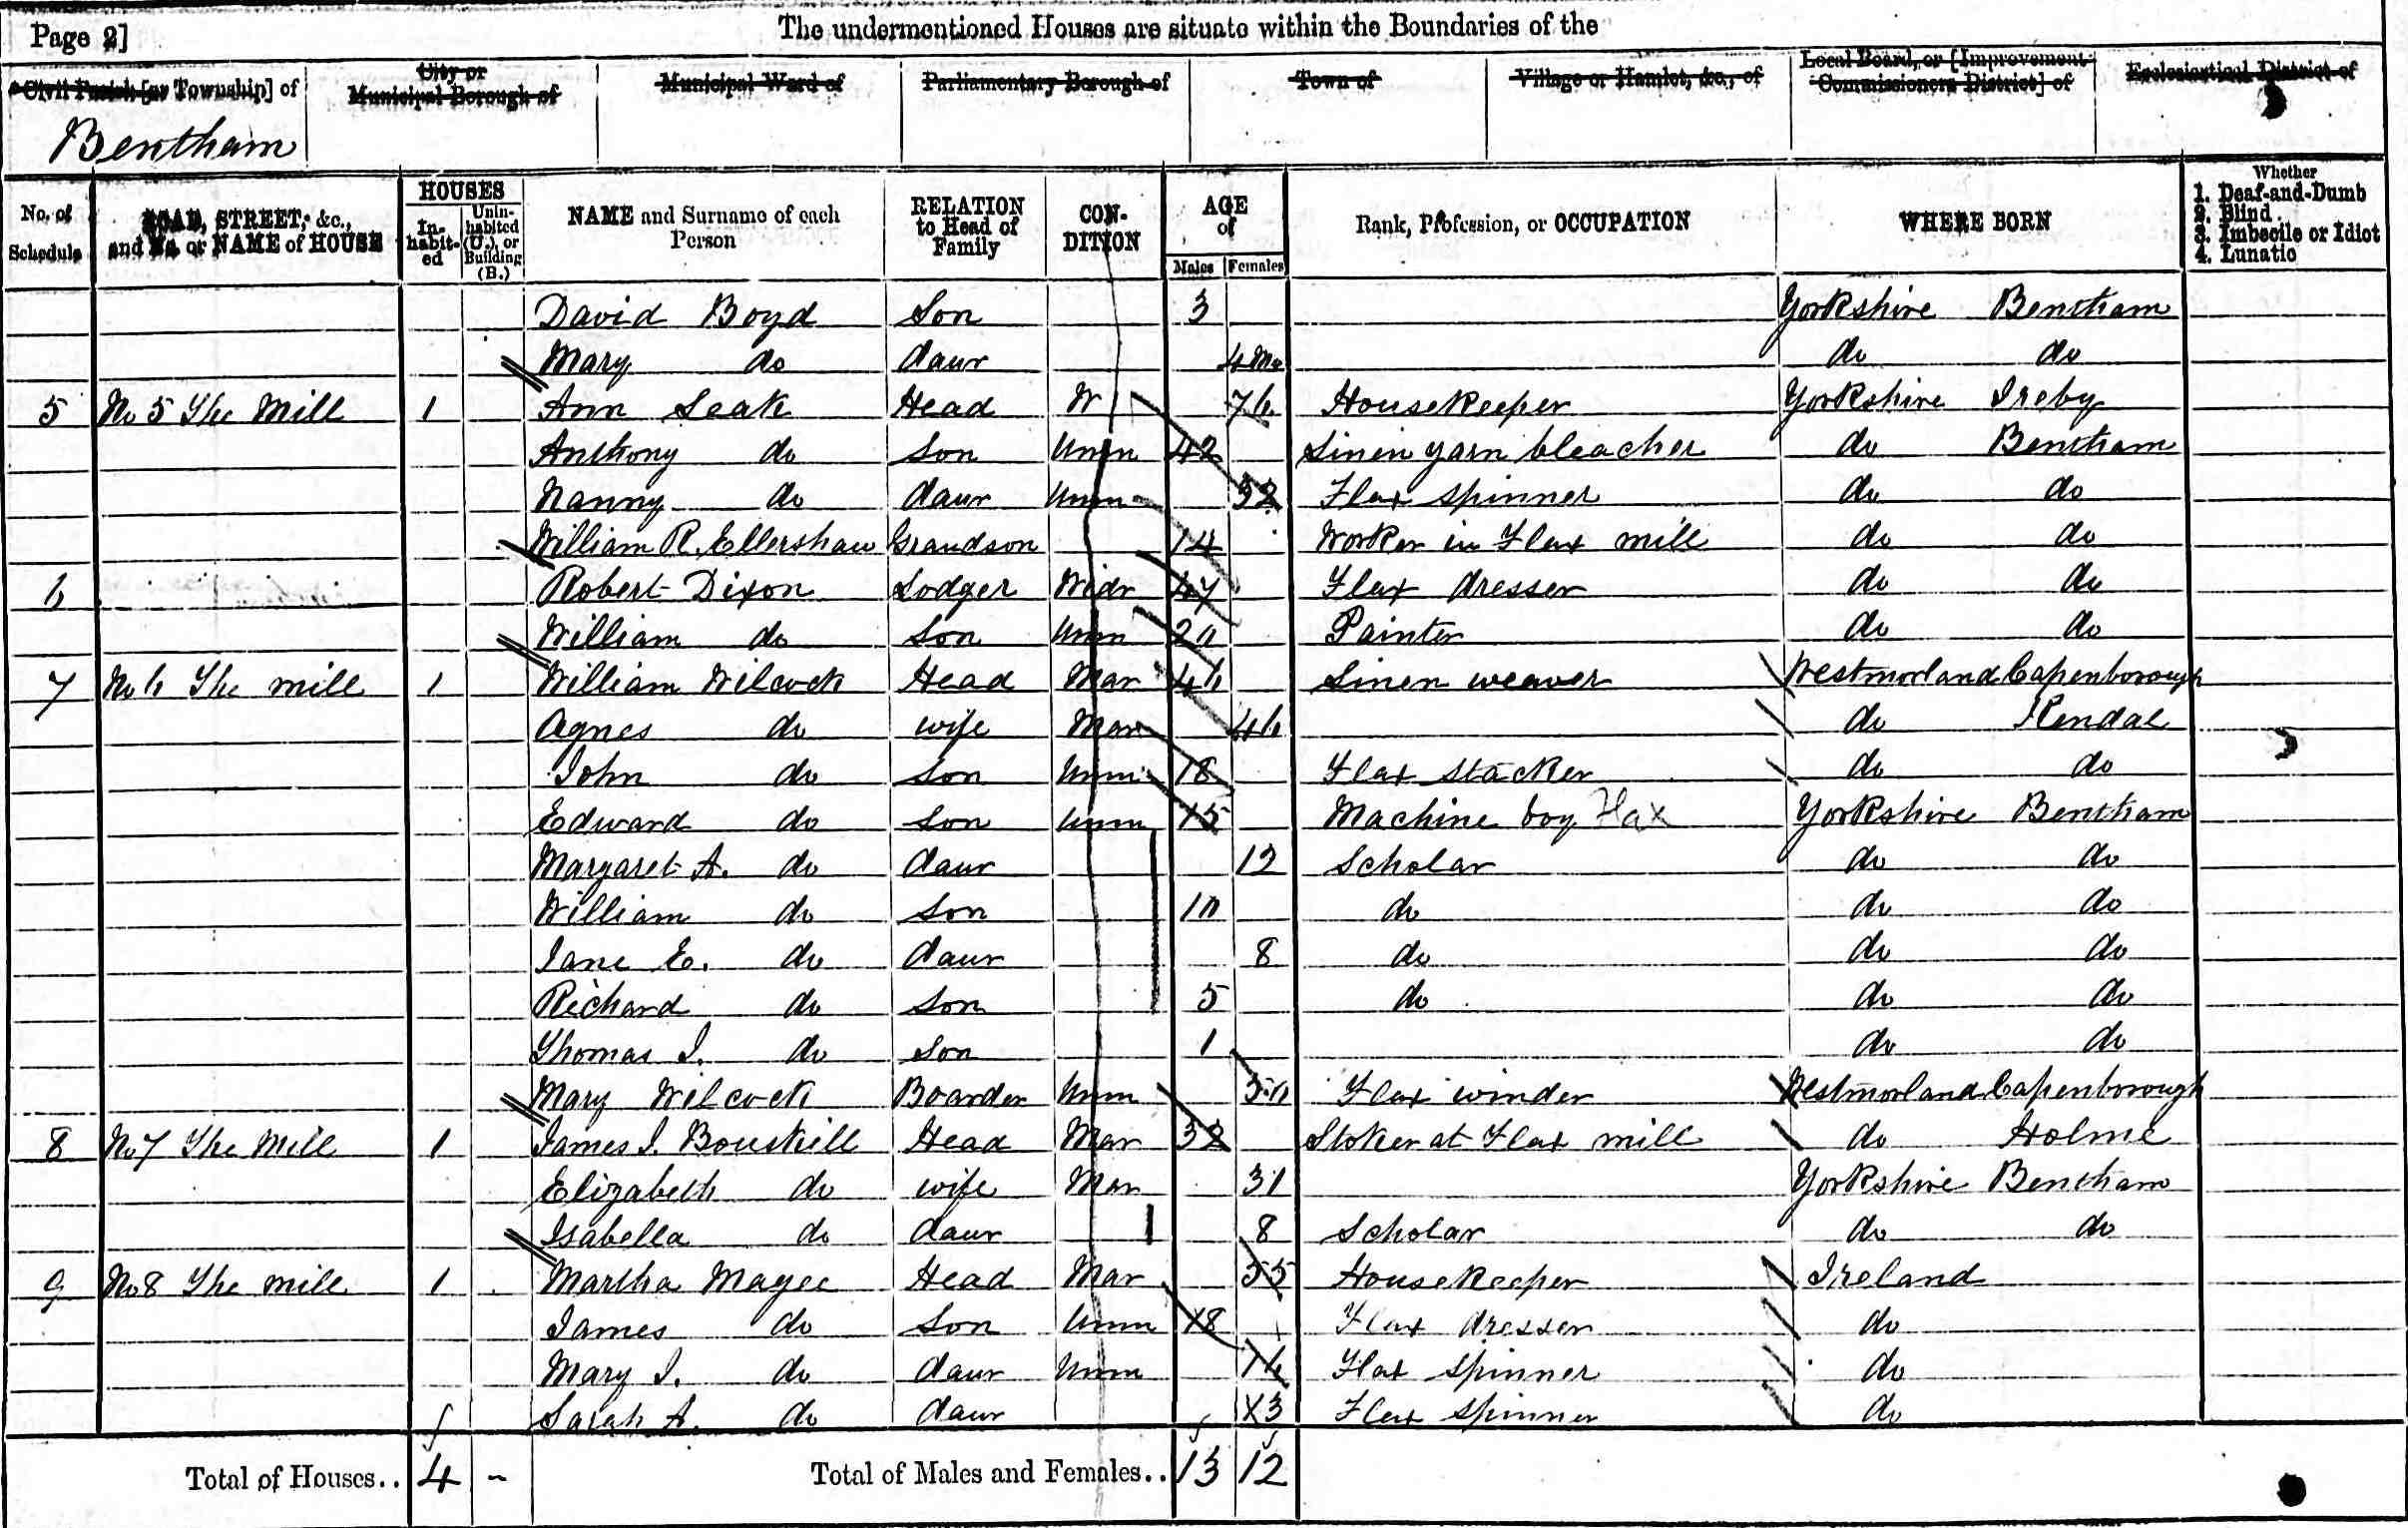 Page 2]
The undermentioned Houses are situate within the Boundaries of the
Civil Parish [or Township] of
City or Municipal Borough of
Municipal Ward of
Parliamentary Borough of
Town of
Village or Hamlet, &c., of
Local Board, or [Improvement Commissioners District] of
Ecclesiastical District of
Bentham
No. of Schedule
ROAD, STREET, &c., and No. or NAME of HOUSE
HOUSES
In-habit-ed
Unin-habited (U.), or Building (B.)
NAME and Surname of each Person
RELATION to Head of Family
CON-DITION
AGE of
Males
Females
Rank, Profession, or OCCUPATION
WHERE BORN
Whether
1. Deaf-and-Dumb
2. Blind
3. Imbecile or Idiot
4. Lunatic
David Boyd Son 3 Yorkshire Bentham
Mary do daur 4 Mo do do
5 No 5 The Mill 1 Ann Leak Head W 76 Housekeeper Yorkshire Ireby
Anthony do Son Unm 42 Linen yarn bleacher do Bentham
Nanny do daur Unm 32 Flax spinner do do
William R. Ellershaw Grandson 14 Worker in Flax mill do do
6 Robert Dixon Lodger Widr 47 Flax dresser do do
William do Son Unm 20 Painter do do
7 No 6 The mill 1 William Wilcock Head Mar 46 Linen weaver Westmorland Capenborough
Agnes do wife Mar 46 do Kendal
John do Son Unm 18 Flax stacker do do
Edward do Son Unm 15 Machine boy Flax Yorkshire Bentham
Margaret A. do daur 12 Scholar do do
William do Son 10 do do do
Jane E. do daur 8 do do do
Richard do Son 5 do do do
Thomas J. do Son 1 do do
Mary Wilcock Boarder Unm 50 Flax winder Westmorland Capenborough
8 No 7 The Mill 1 James J. Bouskill Head Mar 32 Stoker at Flax mill do Holme
Elizabeth do wife Mar 31 Yorkshire Bentham
Isabella do daur 8 Scholar do do
9 No 8 The mill 1 Martha Magee Head Mar 55 Housekeeper Ireland
James do Son Unm 18 Flax dresser do
Mary J. do daur Unm 16 Flax spinner do
Sarah A. do daur 13 Flax spinner do
Total of Houses.. 4 - Total of Males and Females.. 13 12